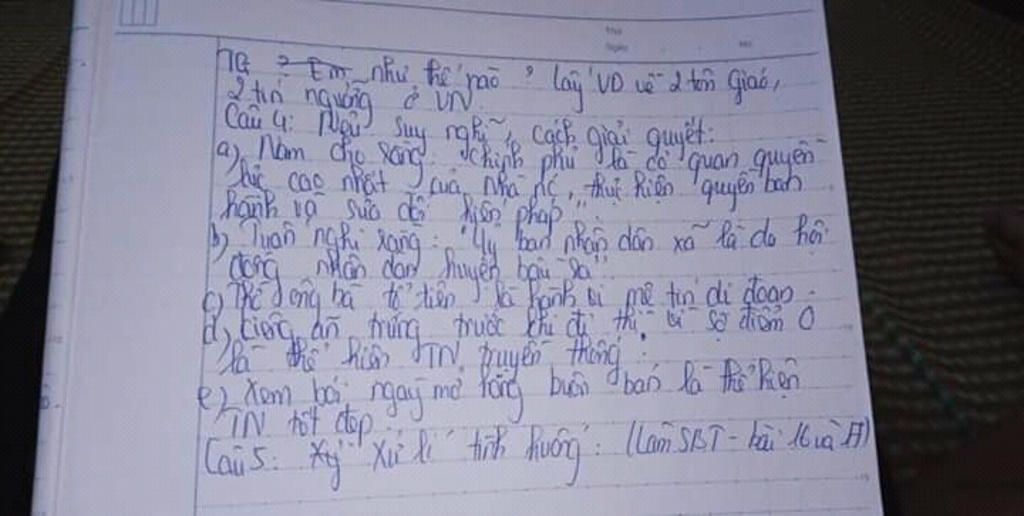 TG ? Em như thế nào? lấy VD về 2 tôn giáó,
2 tín ngưỡng ở VN.
Câu 4: Nêu suy nghĩ, cách giải quyết:
a) Nam cho rằng: "Chính phủ là cơ quan quyền
lực cao nhất của nhà nc, thực hiện quyền ban
hành và sửa đổi hiến pháp"
b) Tuấn nghĩ rằng: "Uỷ ban nhân dân xã là do hội
đồng nhân dân huyện bầu ra"
c) Thờ ông bà tổ tiên là hành vi mê tín dị đoan.
d) Kiêng ăn trứng trước khi đi thi vì sợ điểm 0
là thể hiện TN truyền thống.
e) Xem bói ngày mở hàng buôn bán là thể hiện
TN tốt đẹp.
Câu 5: Xử lí tình huống: (Làm SBT - bài 16 và 17)